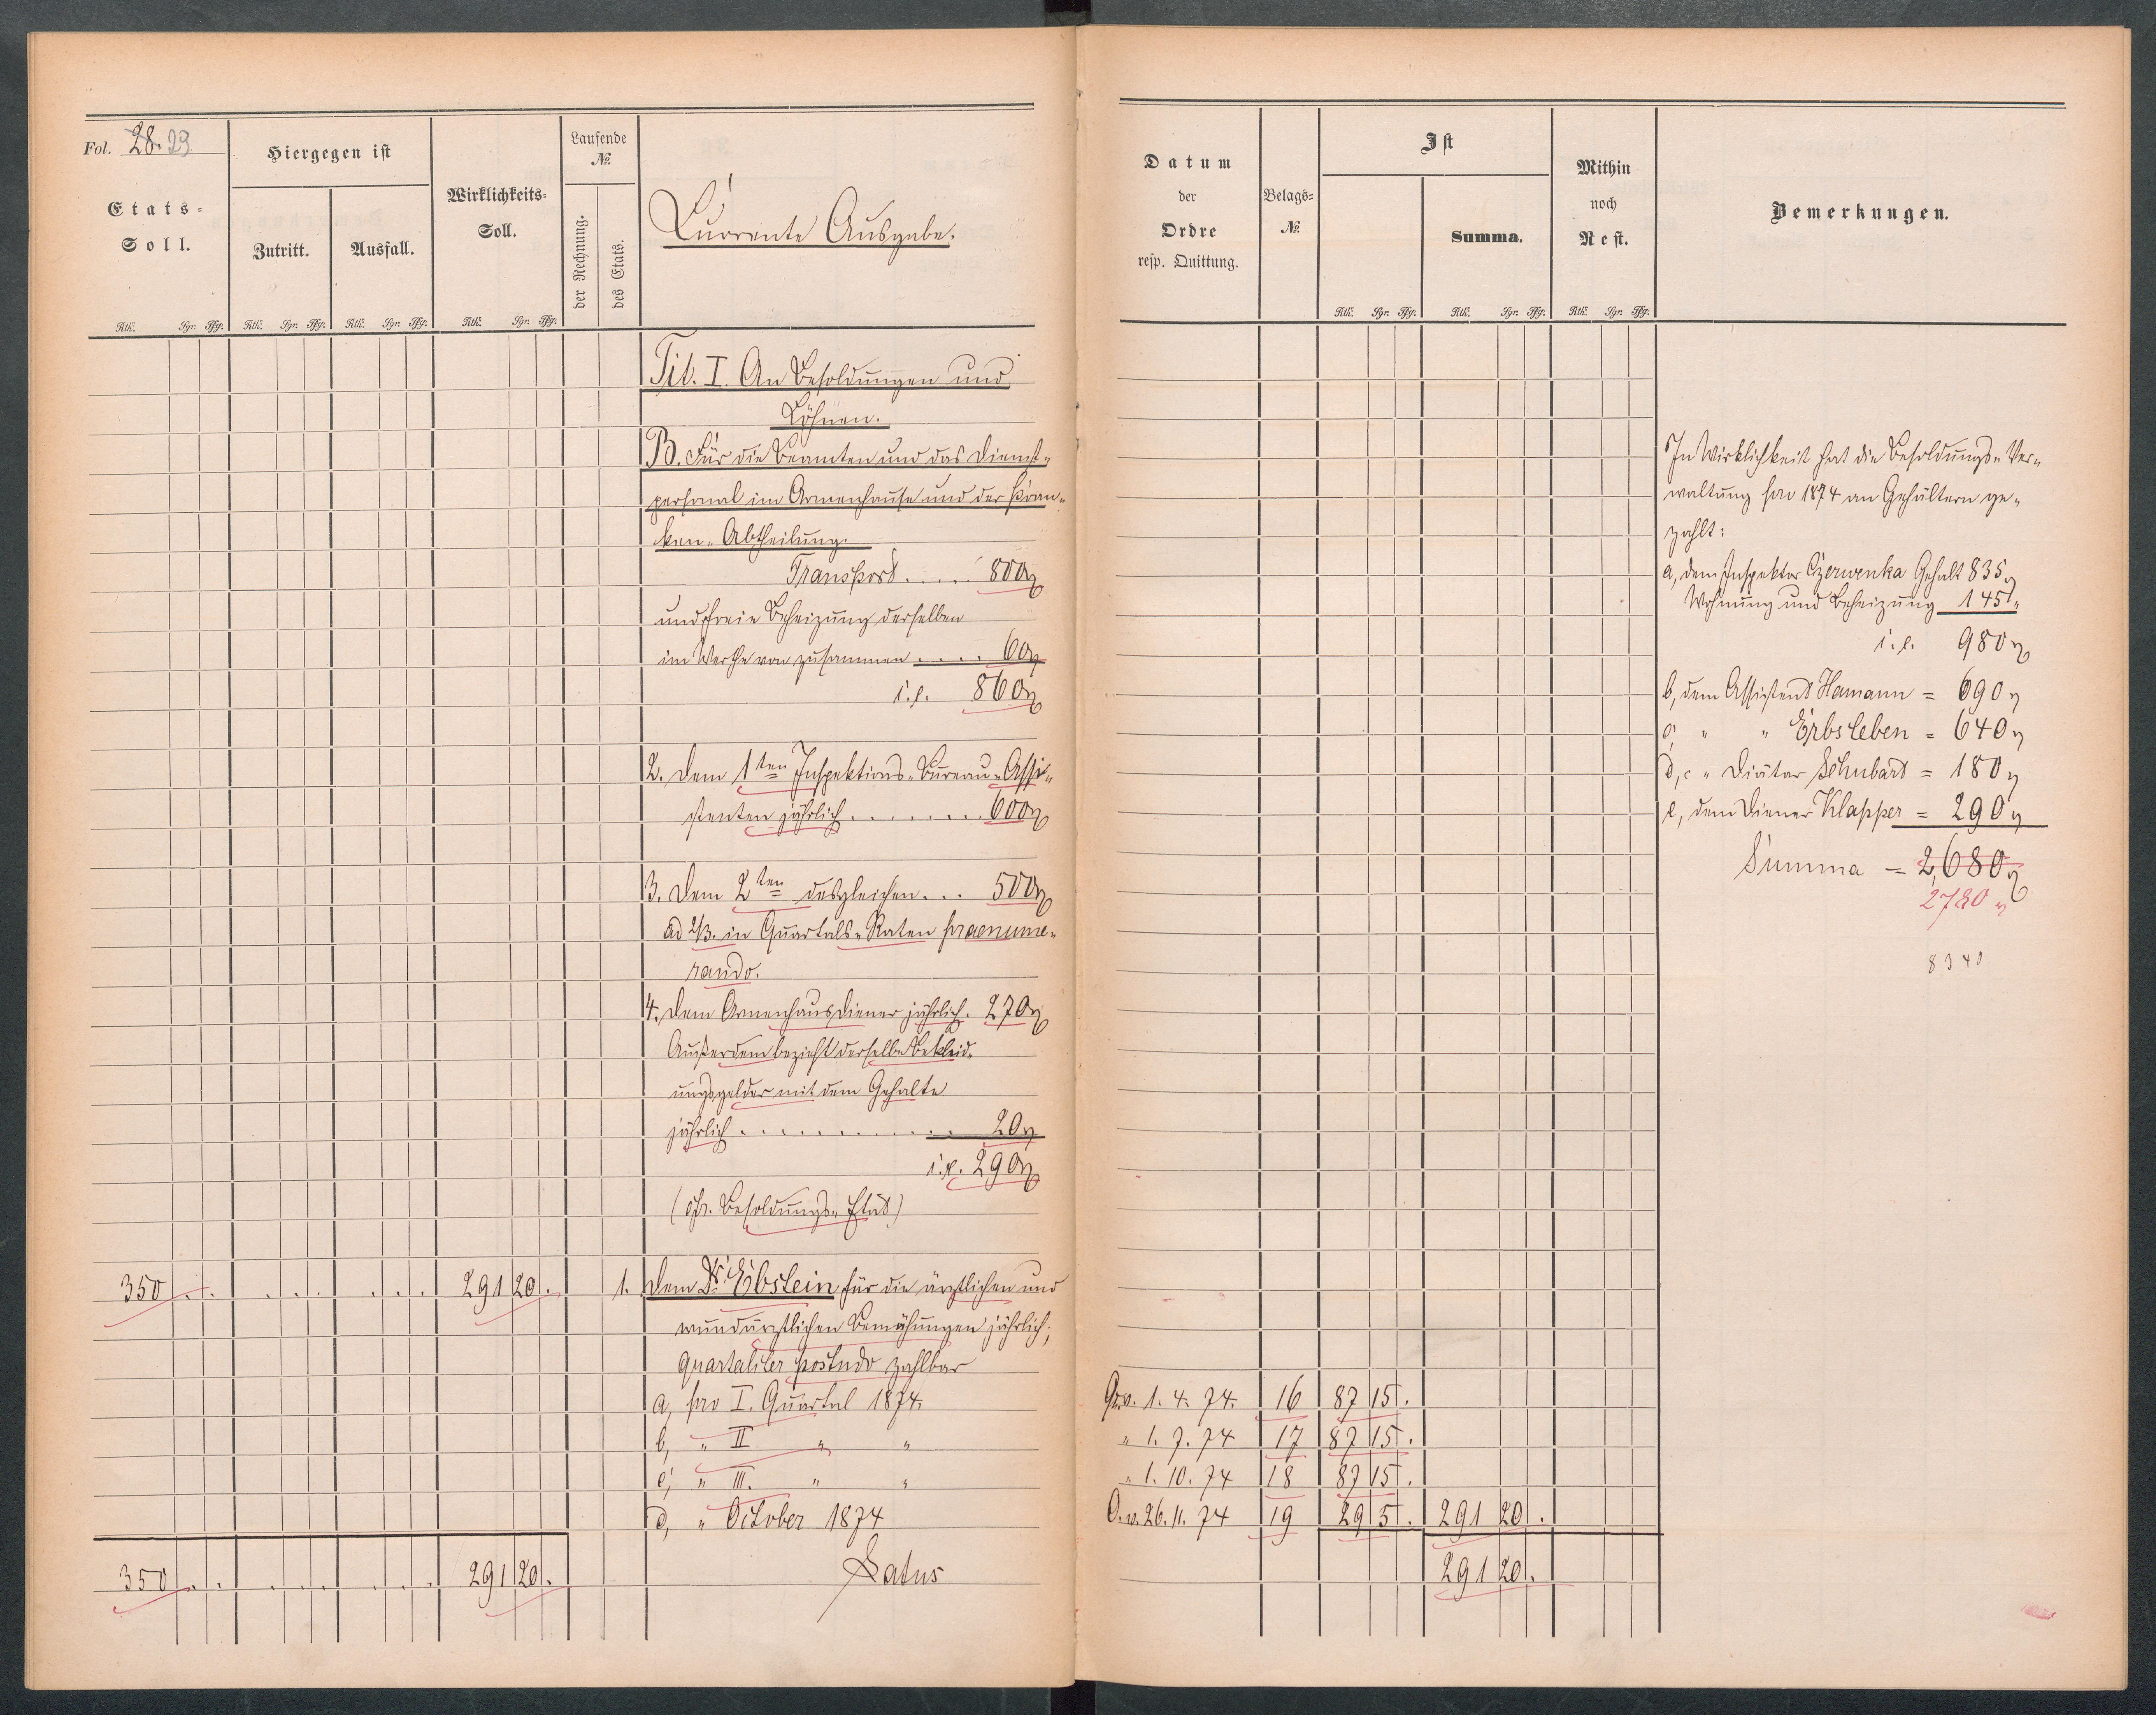 Fol. 28. 29
Etats-
Soll.
Hiergegen ist
Zutritt.
Ausfall.
Wirklichkeits-
Soll.
Laufende
№.
der Rechnung.
des Etats.
Currente Ausgabe.
Rth. Sgr. Pfg. Rth. Sgr. Pfg. Rth. Sgr. Pfg. Rth. Sgr. Pfg.
Tit. I. An Besoldungen und
Löhnen.
B. Für die Beamten und das Dienst-
personal im Armenhause und der Kran-
ken-Abtheilung.
Transport..... 800
und freie Beheizung derselben
im Werthe von zusammen .... 60
i.s. 860
2. Dem 1ten Inspektions-Bureau-Assi-
stenten jährlich ....... 600
3. Dem 2ten desgleichen... 500
ad 2/3. in Quartals-Raten praenume-
rando.
4. Dem Armenhausdiener jährlich. 270
Außerdem bezieht derselbe Bekleid-
ungsgelder mit dem Gehalte
jährlich .......... 20
i.s. 290
(cfr. Besoldungs-Etat)
350 . . . . . . . . 291 20 . 1. Dem Dr. Ebstein für die ärztlichen und
wundärztlichen Bemühungen jährlich;
quartaliter postndo zahlbar
a, pro I. Quartal 1874.
b, " II " "
c, " III. " "
d, " October 1874
350 . . . . . . . . 291 20 . Latus
Datum
der
Ordre
resp. Quittung.
Belags-
№.
Ist
Summa.
Mithin
noch
Rest.
Bemerkungen.
Rth. Sgr. Pfg. Rth. Sgr. Pfg. Rth. Sgr. Pfg.
In Wirklichkeit hat die Besoldungs-Ver-
waltung pro 1874 an Gehältern ge-
zahlt:
a, dem Inspektor Czerwenka Gehalt 835
Wohnung und Beheizung 145 "
i.s. 980
b, dem Assistent Hamann = 690
c, " " Erbsleben = 640
d, " Diätar Schubart = 180
e, dem Diener Klapper = 290
Summa = 2,680
2780
8340
Qu.v. 1. 4. 74. 16 87 15 .
" 1. 7. 74 17 87 15 .
" 1. 10. 74 18 87 15 .
O.v. 26. 11. 74 19 29 5 . 291 20 .
291 20 .